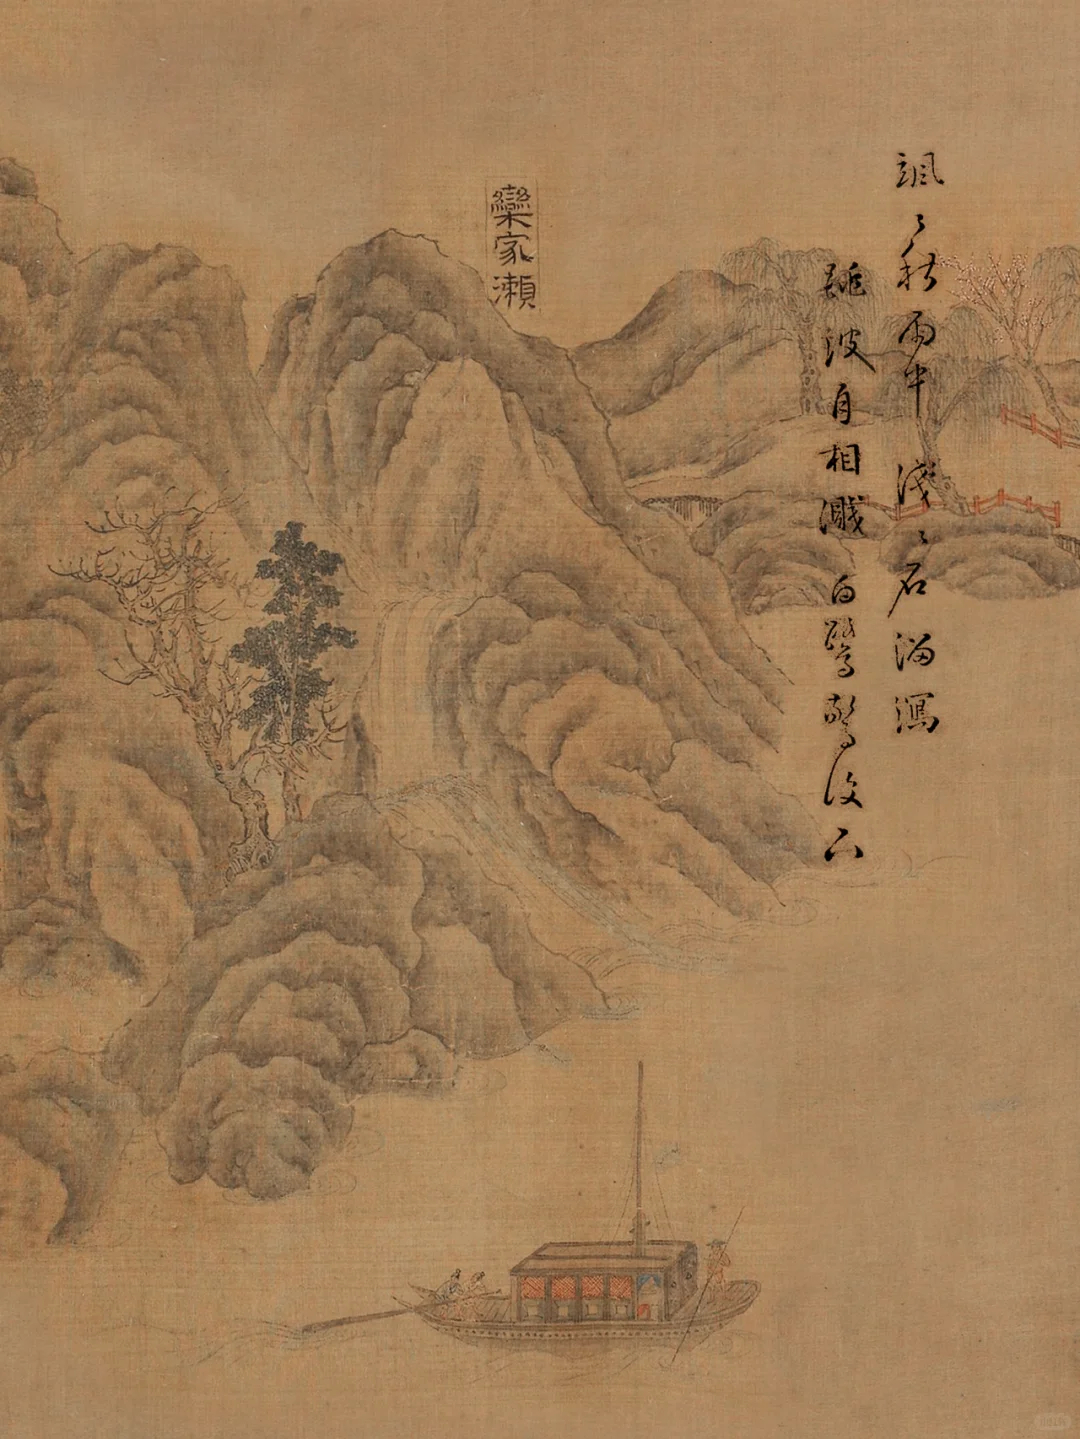 颯〻秋雨中 淺〻石溜瀉
跳波自相濺 白鷺驚復下
欒家瀨